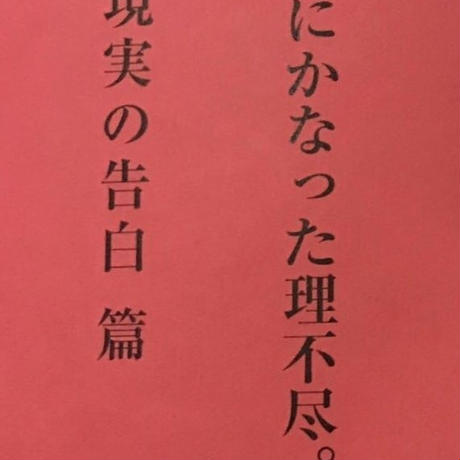 にかなった理不尽。
現実の告白 篇